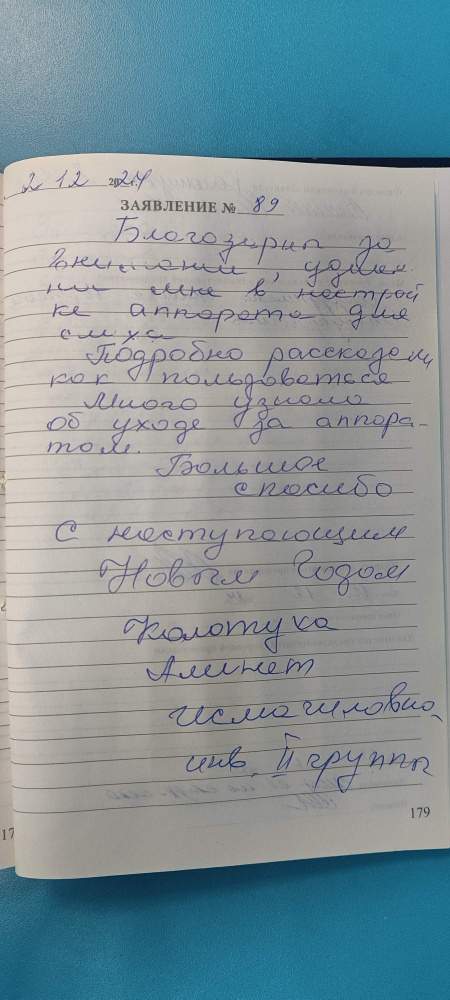 2 12 2024 г.
ЗАЯВЛЕНИЕ № 89
Благодарны за
внимании, уделен
ни мне в настрой
ке аппарата для
слуха
Подробно рассказали,
как пользоваться
Много узнала
об уходе за аппора-
том.
Большое
спасибо
С наступающим
Новым Годом
Колотуха
Аминет
Исмаиловна,
инв. II группы
179